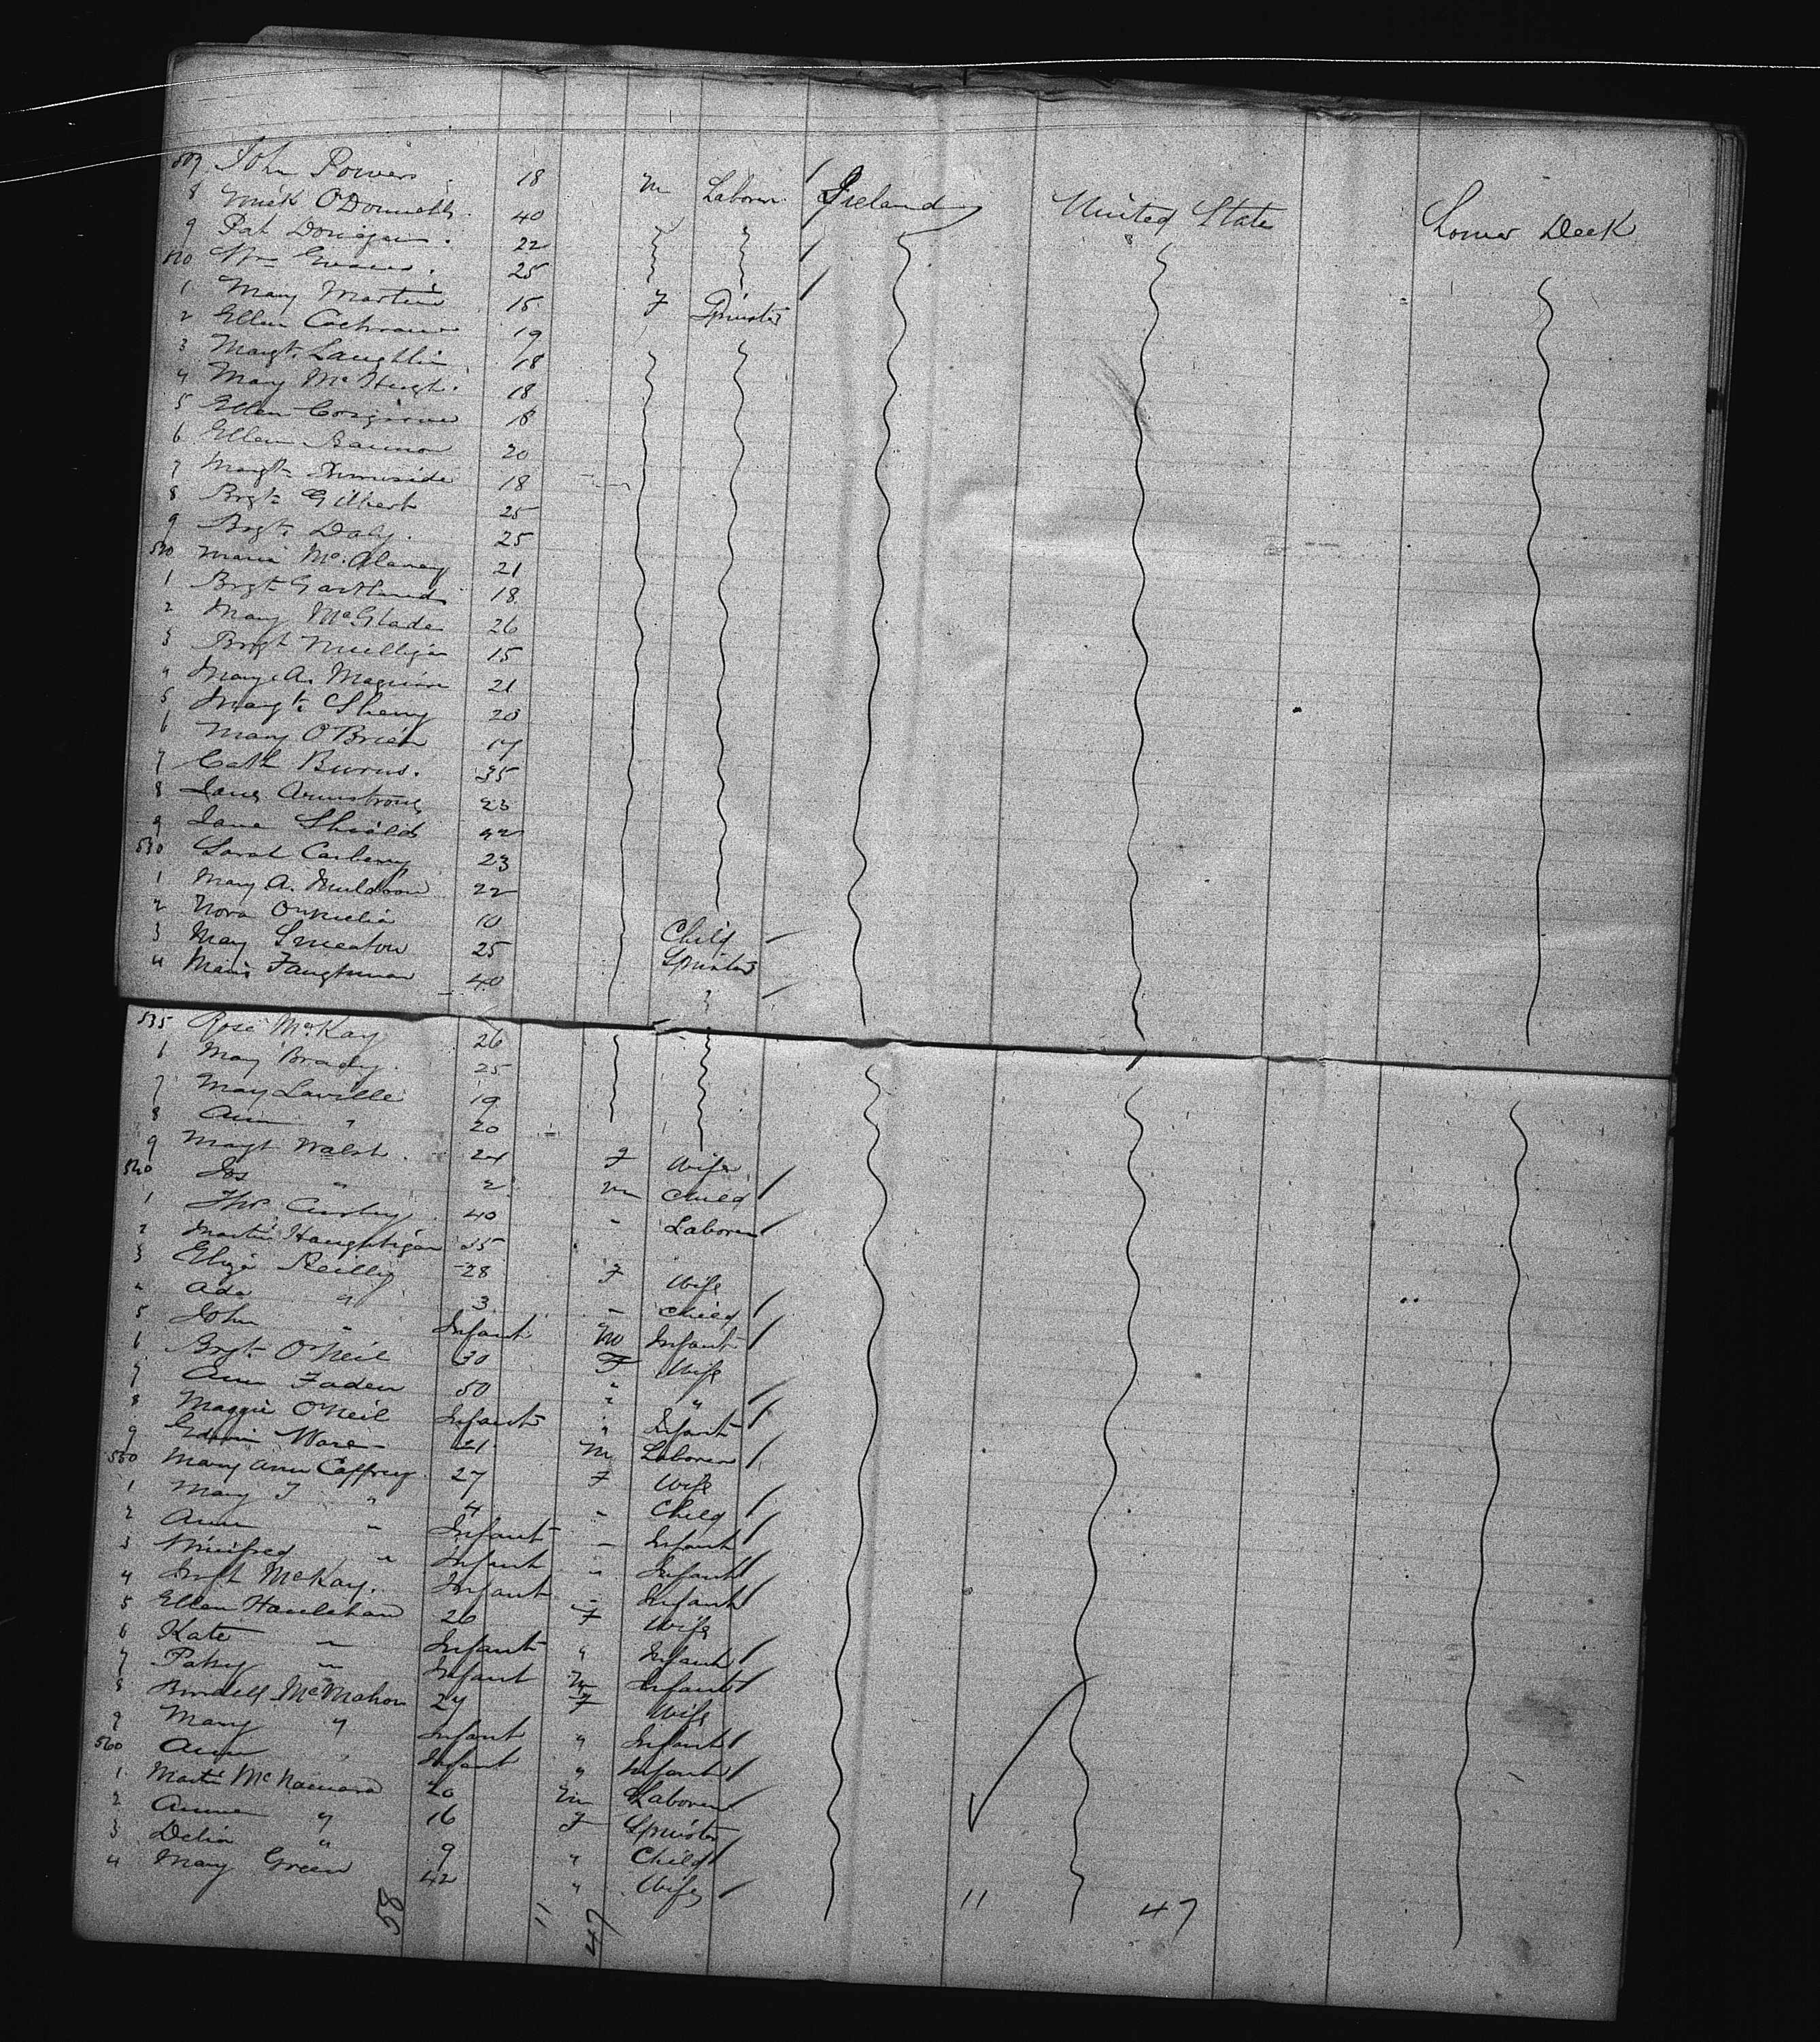 507 John Powers 18 m Laborer Ireland United States Lower Deck
8 Mick O'Donnell 40
9 Pat Donigan 22
510 Wm Evans 25
1 Mary Martin 15 F Spinster
2 Ellen Cochrane 19
3 Margt. Laughlin 18
4 Mary McHugh 18
5 Ellen Cosgrove 18
6 Ellen Bannon 20
7 Margt 18
8 Brgt Gilbert 25
9 Brgt. Daly 25
520 Maria McAlaney 21
1 Brgt Gartland 18
2 Mary McGlade 26
3 Brgt Mulligan 15
4 Mary A. Maguire 21
5 Margt. Sherry 20
6 Mary O'Brien 17
7 Cath Burns 35
8 Jane Armstrong 23
9 Jane Shields 22
530 Sarah Carberry 23
1 Mary A. Muldoon 22
2 Nora 10 Child
3 May Smeaton 25 Spinster
4 Maria 40
535 Rose McKay 26
6 May Brady 25
7 May Laville 19
8 Ann " 20
9 Margt Walsh 24 F Wife
540 Jos " 2 m Child
1 Thos. 40 " Laborer
2 Martin Haughigan 35
3 Eliza Reilly 28 F Wife
4 Ada " 3 " Child
5 John " Infant m Infant
6 Brgt O'Neil 30 F Wife
7 Ann Faden 50 " "
8 Maggie O'Neil Infant " Infant
9 Edwin Ware 21 m Laborer
550 Mary Ann Caffrey 27 F Wife
1 Mary J " 4 " Child
2 Ann " Infant " Infant
3 Winifred " Infant " Infant
4 Brgt McKay Infant " Infant
5 Ellen Hanlehan 26 F Wife
6 Kate " Infant " Infant
7 Patsy " Infant m Infant
8 McMahon 27 F Wife
9 Mary " Infant " Infant
560 Ann " Infant " Infant
1 Martin McNamara 20 m Laborer
2 Annie " 16 F Spinster
3 Delia " 9 " Child
4 Mary Green 42 " Wife
58 11 47 11 47